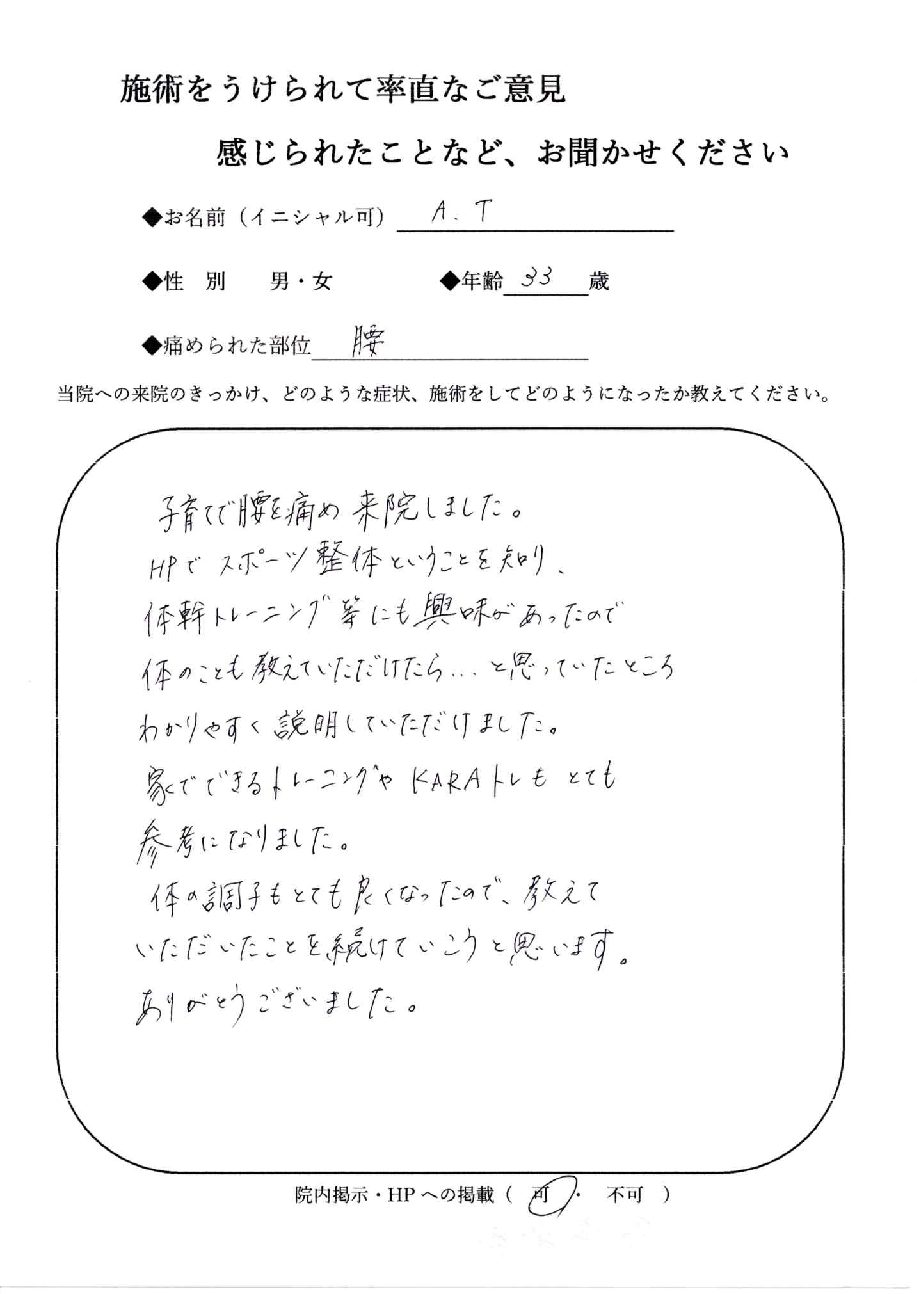 施術をうけられて率直なご意見
感じられたことなど、お聞かせください
◆お名前（イニシャル可） A.T
◆性　別　　男・女　　◆年齢 33 歳
◆痛められた部位 腰
当院への来院のきっかけ、どのような症状、施術をしてどのようになったか教えてください。
子育てで腰を痛め来院しました。
HPでスポーツ整体ということを知り、
体幹トレーニング等にも興味があったので
体のことも教えていただけたら...と思っていたところ
わかりやすく説明していただけました。
家でできるトレーニングやKARAトレもとても
参考になりました。
体の調子もとても良くなったので、教えて
いただいたことを続けていこうと思います。
ありがとうございました。
院内掲示・HPへの掲載（　可　・　不可　）